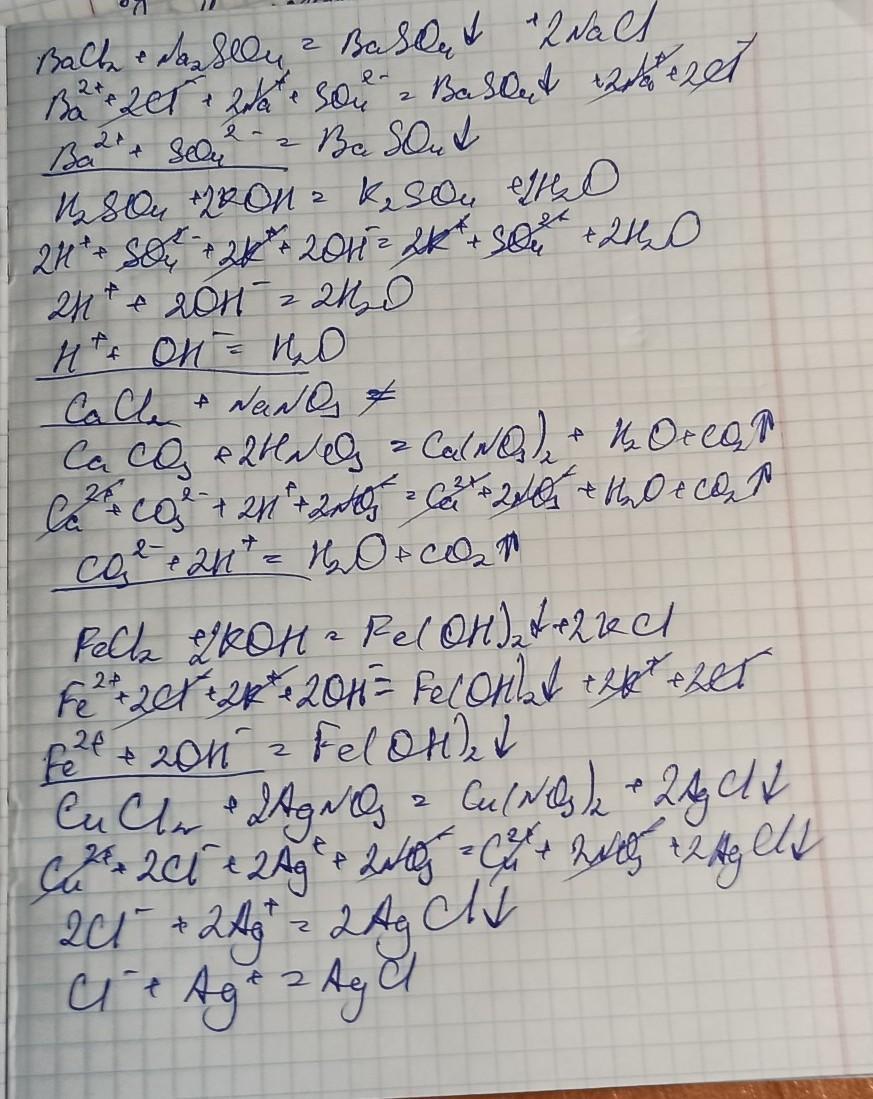 BaCl₂ + Na₂SO₄ = BaSO₄↓ + 2NaCl
Ba²⁺ + 2Cl⁻ + 2Na⁺ + SO₄²⁻ = BaSO₄↓ + 2Na⁺ + 2Cl⁻
Ba²⁺ + SO₄²⁻ = BaSO₄↓
H₂SO₄ + 2KOH = K₂SO₄ + 2H₂O
2H⁺ + SO₄²⁻ + 2K⁺ + 2OH⁻ = 2K⁺ + SO₄²⁻ + 2H₂O
2H⁺ + 2OH⁻ = 2H₂O
H⁺ + OH⁻ = H₂O
CaCl₂ + NaNO₃ ≠
CaCO₃ + 2HNO₃ = Ca(NO₃)₂ + H₂O + CO₂↑
Ca²⁺ + CO₃²⁻ + 2H⁺ + 2NO₃⁻ = Ca²⁺ + 2NO₃⁻ + H₂O + CO₂↑
CO₃²⁻ + 2H⁺ = H₂O + CO₂↑
FeCl₂ + 2KOH = Fe(OH)₂↓ + 2KCl
Fe²⁺ + 2Cl⁻ + 2K⁺ + 2OH⁻ = Fe(OH)₂↓ + 2K⁺ + 2Cl⁻
Fe²⁺ + 2OH⁻ = Fe(OH)₂↓
CuCl₂ + 2AgNO₃ = Cu(NO₃)₂ + 2AgCl↓
Cu²⁺ + 2Cl⁻ + 2Ag⁺ + 2NO₃⁻ = Cu²⁺ + 2NO₃⁻ + 2AgCl↓
2Cl⁻ + 2Ag⁺ = 2AgCl↓
Cl⁻ + Ag⁺ = AgCl